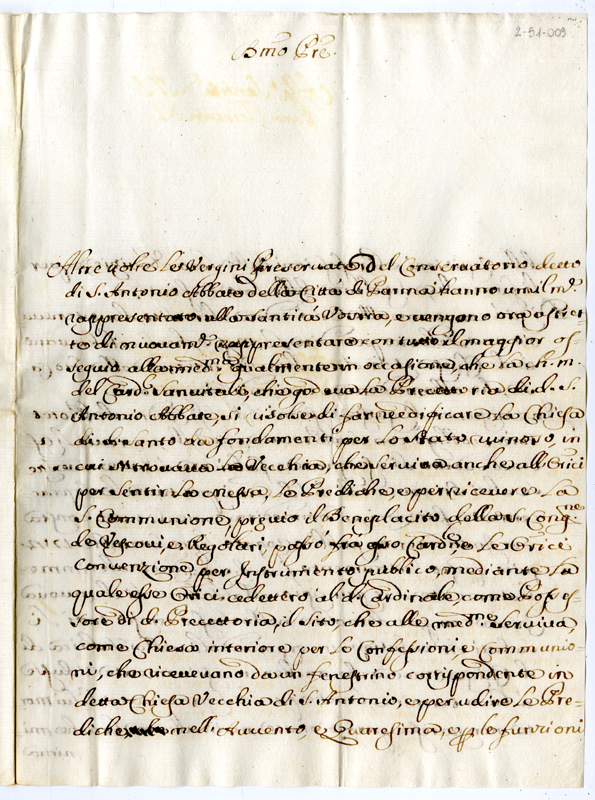 2-51-009
Bmo Pre.
Altre volte le Vergini Preservate del Conservatorio detto
di S. Antonio Abbate della Città di Parma hanno umilmte.
rappresentato alla Santità Vostra, e vengono ora astret-
te di nuovamte. rappresentare con tutto il maggior os-
sequio alla medma. qualmente in occasione, che la ch: m:
del Card. Sanvitali, che godeva la Precettoria di d. S.
Antonio Abbate, si risolvé di far reedificare la Chiesa
di do. Santo da fondamenti per lo stato rovinoso, in
cui ritrovavasi la Vecchia, che serviva anche all'Orici
per sentir la Messa, le Prediche, e per ricevere la
S. Communione, previo il Beneplacito della S. Congne.
de Vescovi, e Regolari, passò fra esso Cardle. e le Orici
Convenzione per Instrumento publico, mediante la
quale esse Orici cedettero al d. Cardinale, come Posses-
sore di d. Precettoria, il sito, che alle medme. serviva,
come Chiesa interiore per le Confessioni, e Communio-
ni, che ricevevano da un fenestrino corrispondente in
detta Chiesa Vecchia di S. Antonio, e per udire le Pre-
diche, nell'Auvento, e Quaresima, e p. le funzioni